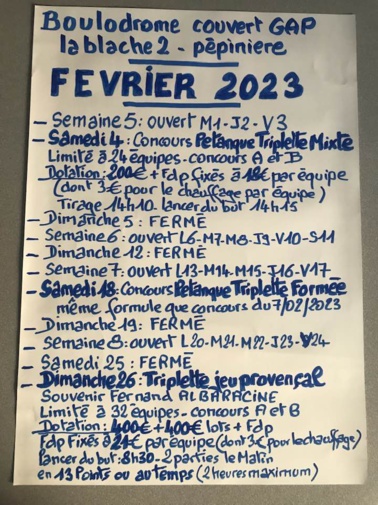 Boulodrome couvert GAP
la blache 2 - pépiniere
FEVRIER 2023
- Semaine 5: ouvert M1-J2-V3
- Samedi 4: Concours Petanque Triplette Mixte
Limité à 24 équipes - concours A et B
Dotation: 200€ + Fdp fixés à 18€ par équipe
(dont 3€ pour le chauffage par équipe)
Tirage 14h10. lancer du but 14h15
- Dimanche 5: FERMÉ
- Semaine 6: ouvert L6-M7-M8-J9-V10-S11
- Dimanche 12: FERMÉ
- Semaine 7: ouvert L13-M14-M15-J16-V17
- Samedi 18: Concours Petanque Triplette Formée
même formule que concours du 7/02/2023
- Dimanche 19: FERMÉ
- Semaine 8: ouvert L20-M21-M22-J23-V24
- Samedi 25: FERMÉ
- Dimanche 26: Triplette jeu provençal
Souvenir Fernand ALBARACINE
Limité à 32 équipes - concours A et B
Dotation: 400€ + 400€ lots + Fdp
Fdp Fixés à 21€ par équipe (dont 3€ pour le chauffage)
lancer du but: 8h30 - 2 parties le Matin
en 13 Points ou au temps (2 heures maximum)